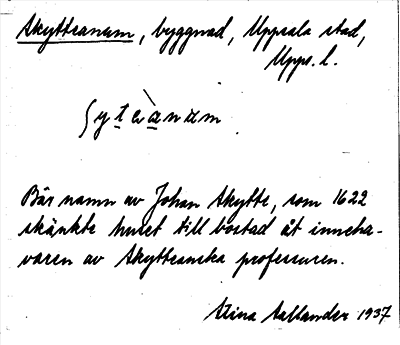 Skytteanum, byggnad, Uppsala stad,
Upps. l.
ʃyteànum.
Bär namn av Johan Skytte, som 1622
skänkte huset till bostad åt inneha-
varen av Skytteanska professuren.
Stina Sallander 1937